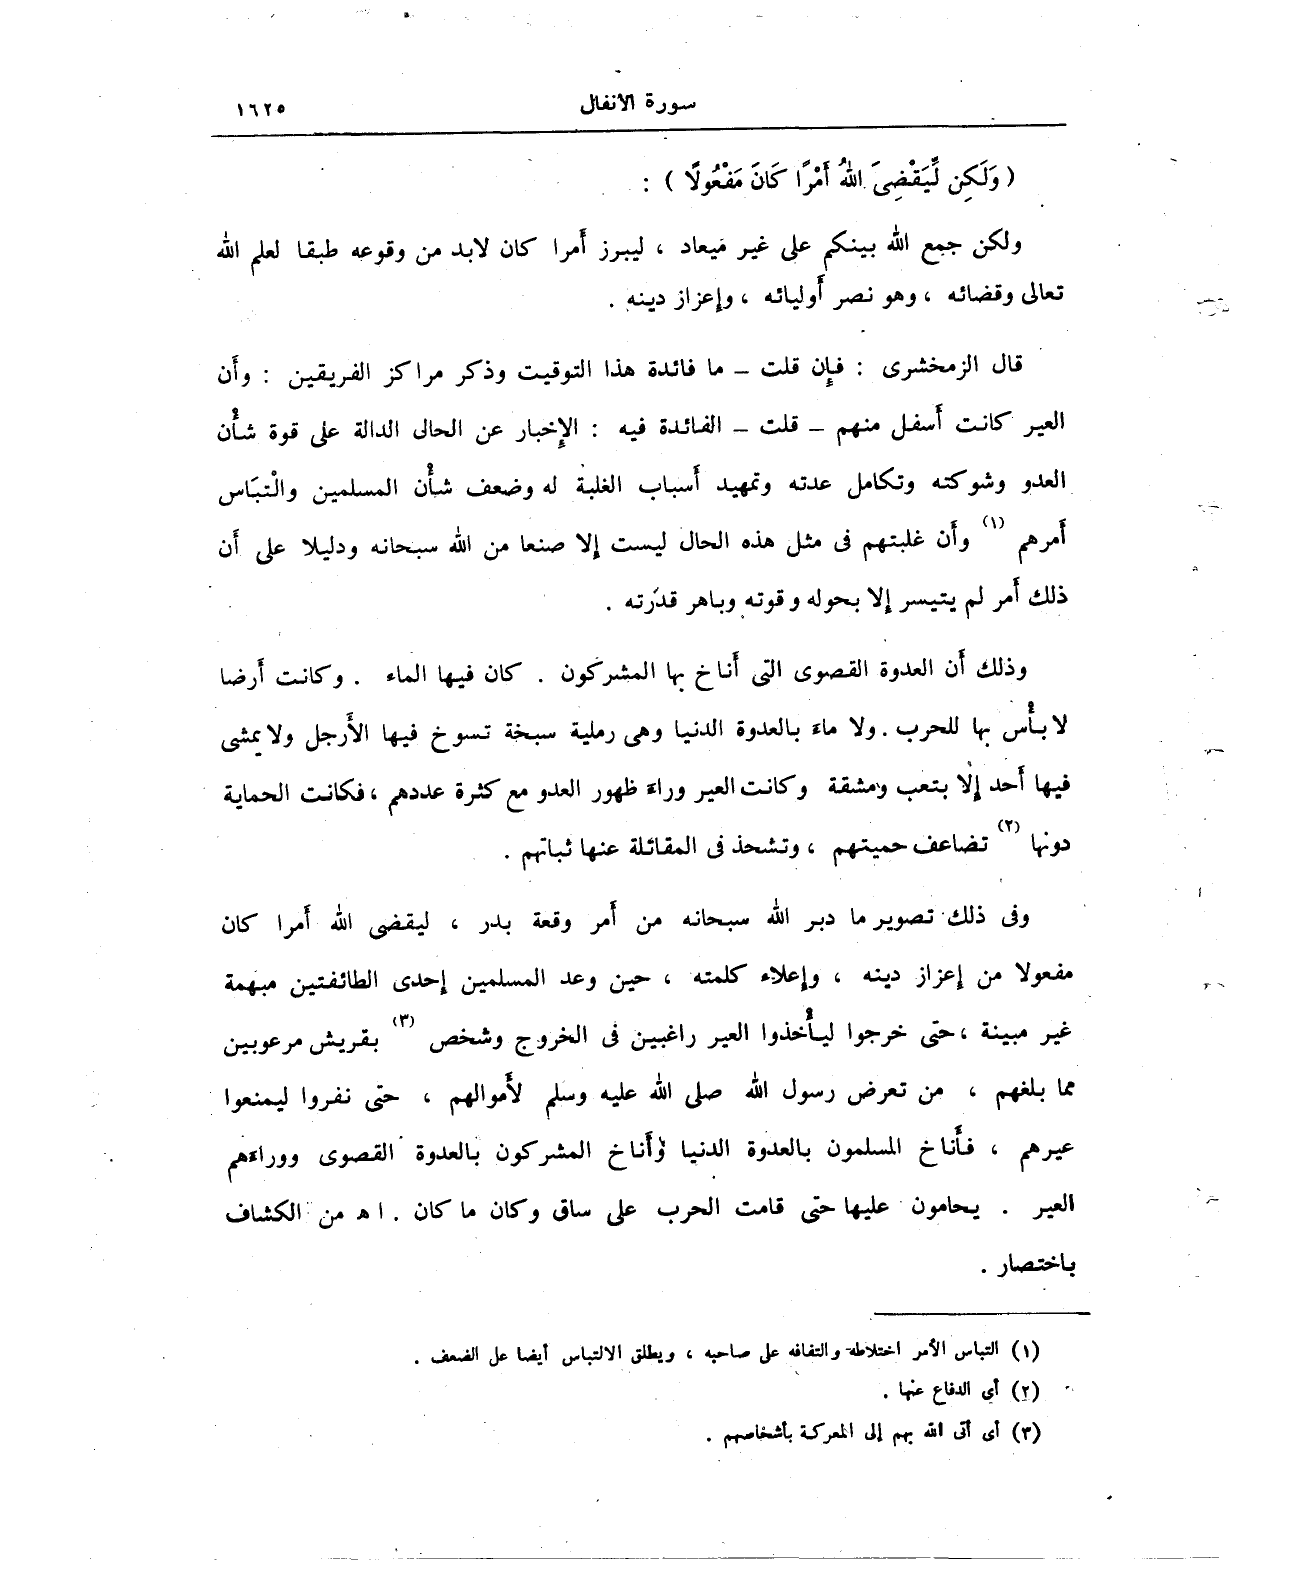 سورة الأنفال ١٦٢٥
( وَلَكِن لِّيَقْضِىَ اللهُ أَمْرًا كَانَ مَفْعُولًا ) :
ولكن جمع الله بينكم على غير ميعاد ، ليبرز أمرا كان لابد من وقوعه طبقا لعلم الله
تعالى وقضائه ، وهو نصر أوليائه ، وإعزاز دينه .
قال الزمخشرى : فإن قلت – ما فائدة هذا التوقيت وذكر مراكز الفريقين : وأن
العير كانت أسفل منهم – قلت – الفائدة فيه : الإخبار عن الحال الدالة على قوة شأن
العدو وشوكته وتكامل عدته وتمهيد أسباب الغلبة له وضعف شأن المسلمين والْتبَاس
أمرهم (١) وأن غلبتهم فى مثل هذه الحال ليست إلا صنعا من الله سبحانه ودليلا على أن
ذلك أمر لم يتيسر إلا بحوله وقوته وباهر قدرته .
وذلك أن العدوة القصوى التى أناخ بها المشركون . كان فيها الماء . وكانت أرضا
لا بأس بها للحرب . ولا ماء بالعدوة الدنيا وهى رملية سبخة تسوخ فيها الأرجل ولا يمشى
فيها أحد إلا بتعب ومشقة وكانت العير وراء ظهور العدو مع كثرة عددهم ، فكانت الحماية
دونها (٢) تضاعف حميتهم ، وتشحذ فى المقاتلة عنها ثباتهم .
وفى ذلك تصوير ما دبر الله سبحانه من أمر وقعة بدر ، ليقضى الله أمرا كان
مفعولا من إعزاز دينه ، وإعلاء كلمته ، حين وعد المسلمين إحدى الطائفتين مبهمة
غير مبينة ، حتى خرجوا ليأخذوا العير راغبين فى الخروج وشخص (٣) بقريش مرعوبين
مما بلغهم ، من تعرض رسول الله صلى الله عليه وسلم لأموالهم ، حتى نفروا ليمنعوا
عيرهم ، فأناخ المسلمون بالعدوة الدنيا وأناخ المشركون بالعدوة القصوى ووراءهم
العير . يحامون عليها حتى قامت الحرب على ساق وكان ما كان . ا ه من الكشاف
باختصار .
(١) التباس الأمر اختلاطه والتفافه على صاحبه ، ويطلق الالتباس أيضا على الضعف .
(٢) أى الدفاع عنها .
(٣) أى أتى الله بهم إلى المعركة بأشخاصهم .